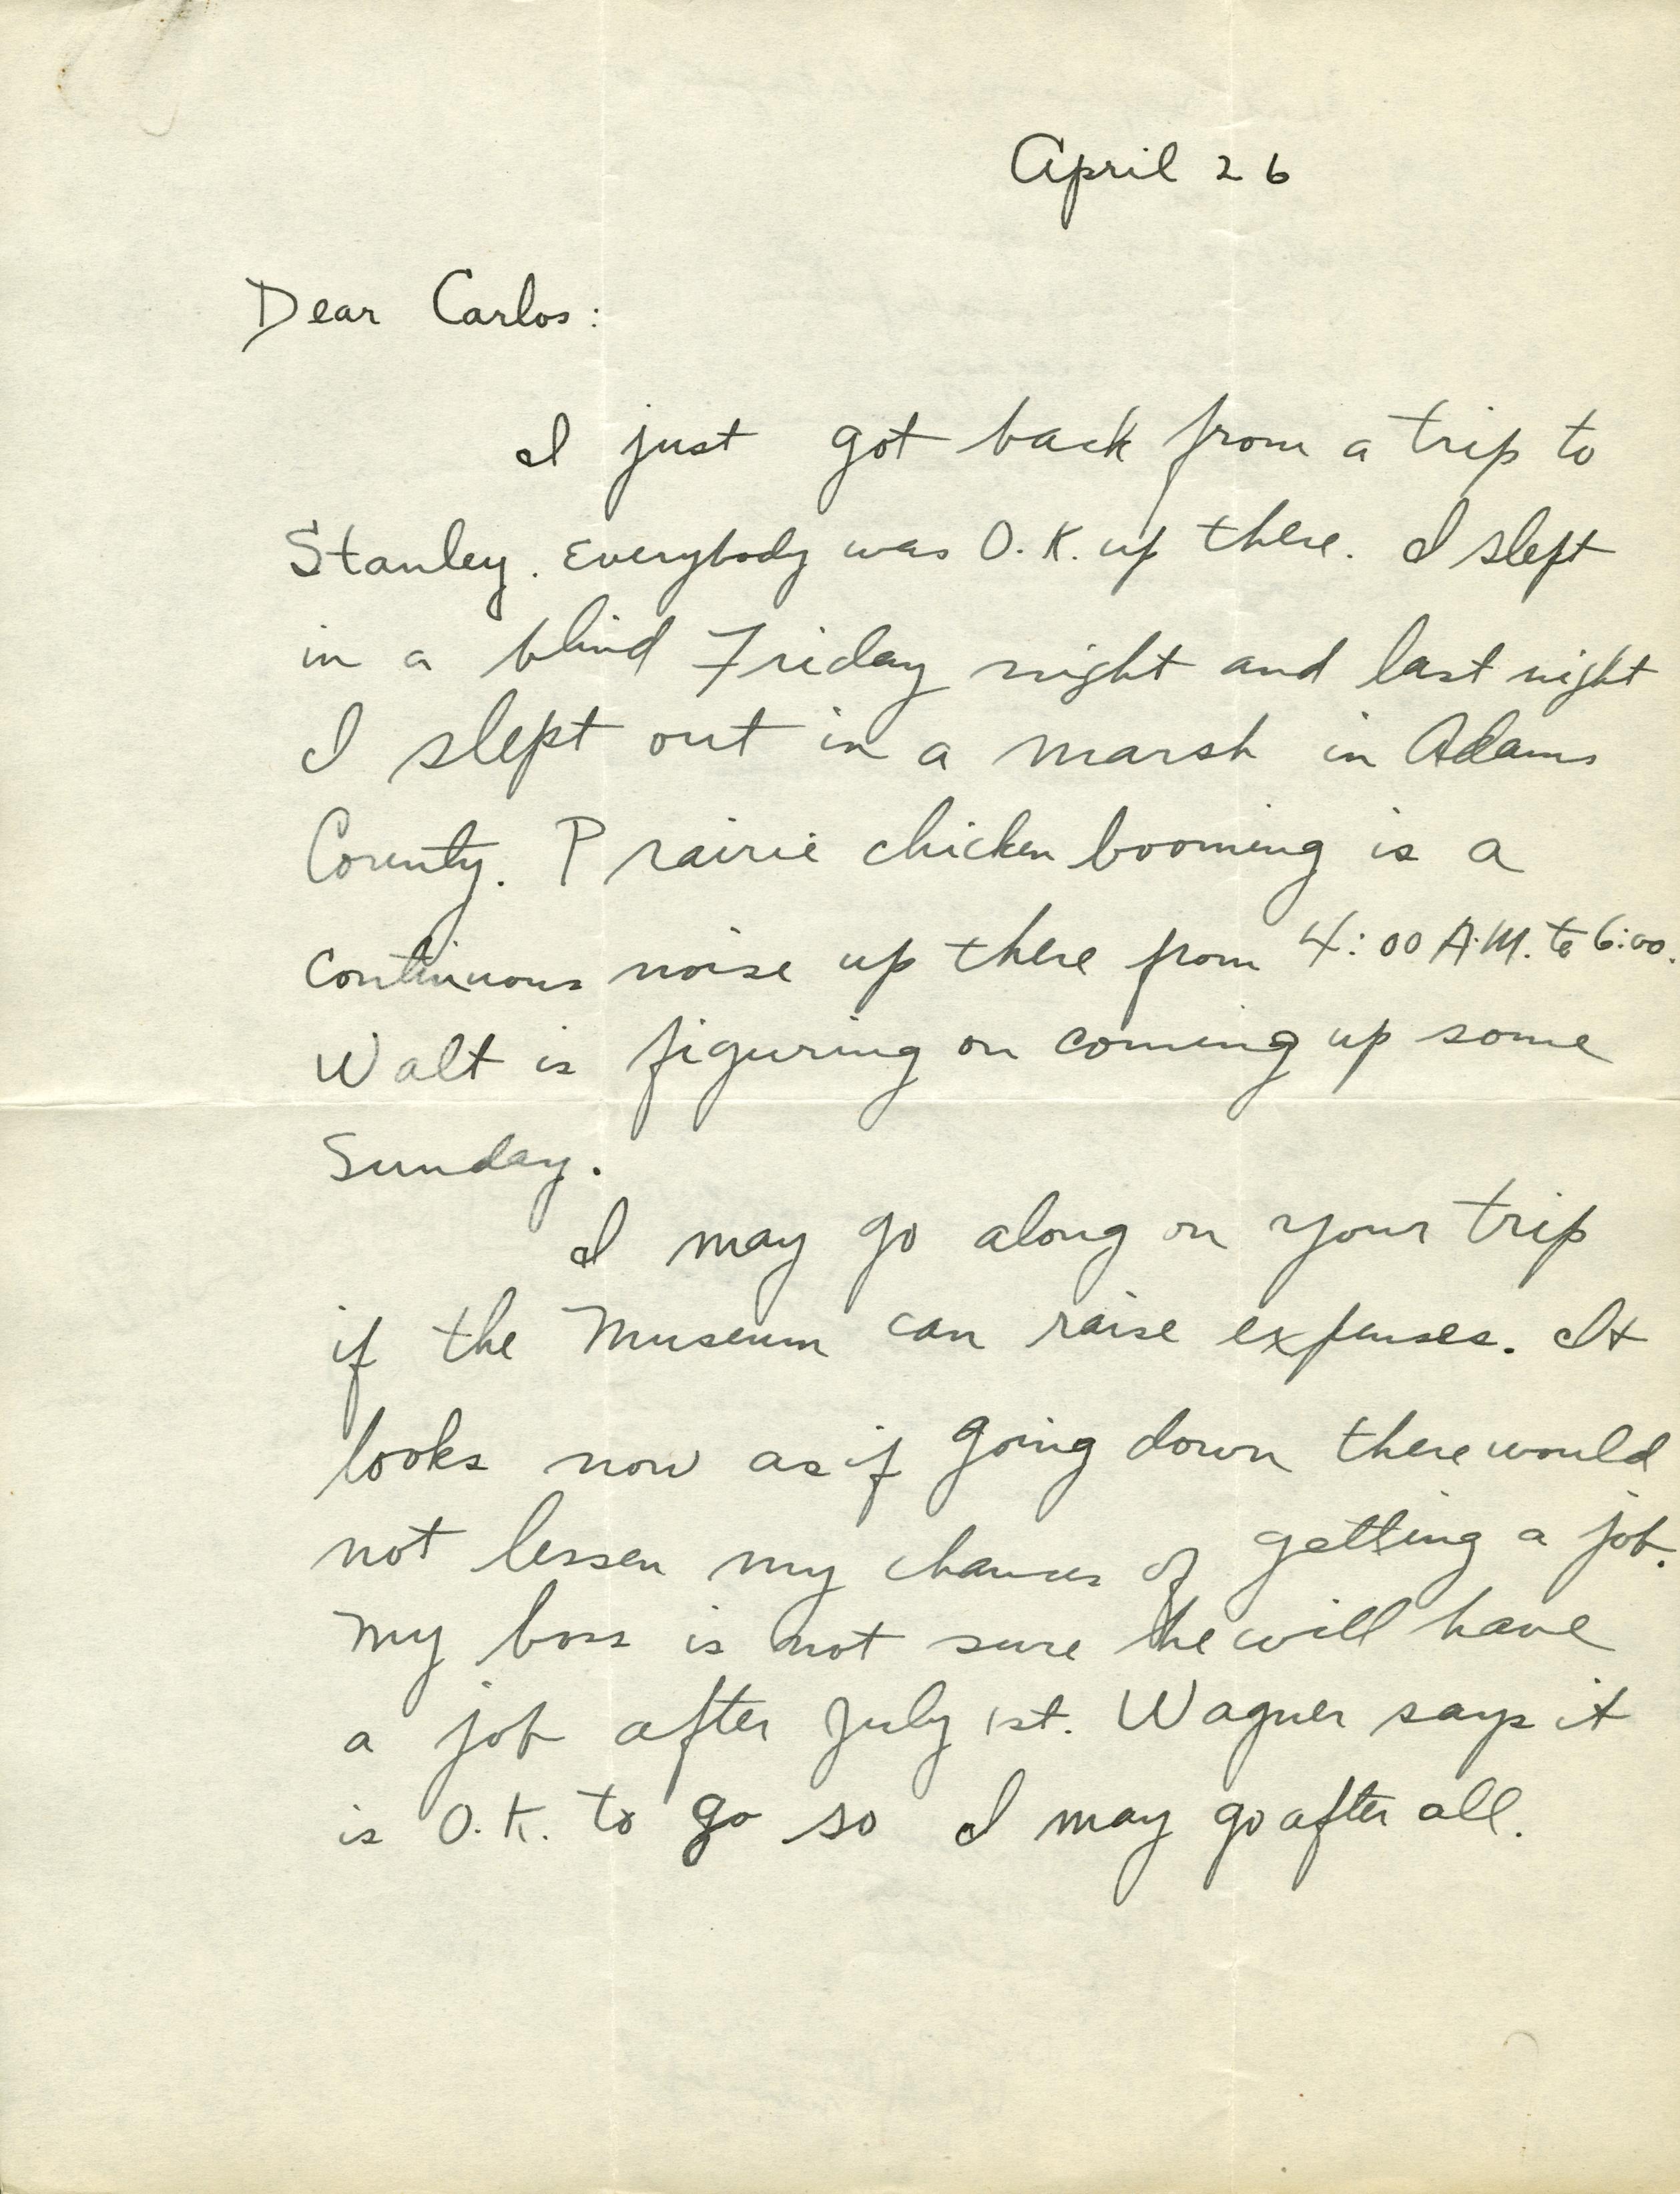 April 26
Dear Carlos:
I just got back from a trip to
Stanley. Everybody was O.K. up there. I slept
in a blind Friday night and last night
I slept out in a marsh in Adams
County. Prairie chicken booming is a
continuous noise up there from 4:00 A.M. to 6:00.
Walt is figuring on coming up some
Sunday.
I may go along on your trip
if the Museum can raise expenses. It
looks now as if going down there would
not lessen my chances of getting a job.
My boss is not sure he will have
a job after July 1st. Wagner says it
is O.K. to go so I may go after all.